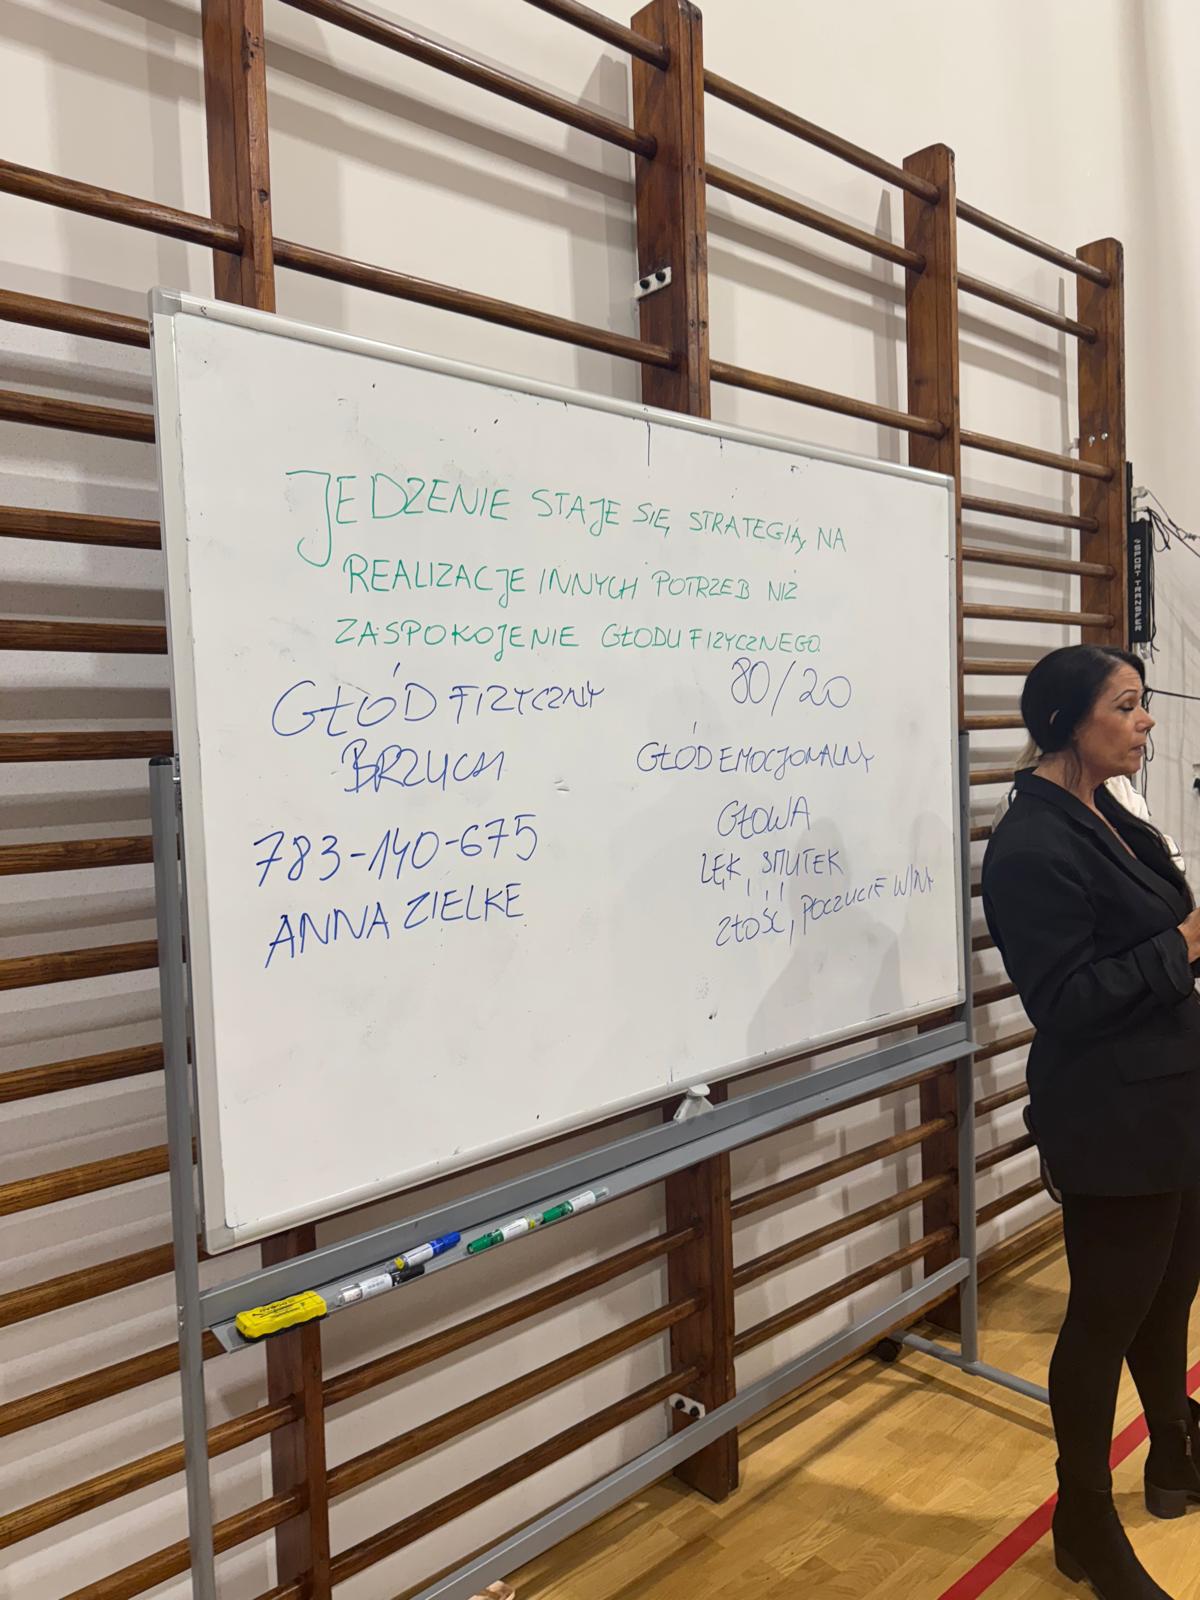 JEDZENIE STAJE SIĘ STRATEGIĄ NA
REALIZACJE INNYCH POTRZEB NIŻ
ZASPOKOJENIE GŁODU FIZYCZNEGO
GŁÓD FIZYCZNY
BRZUCH
783-140-675
ANNA ZIELKE
80/20
GŁÓD EMOCJONALNY
GŁOWA
LĘK, SMUTEK
ZŁOŚĆ, POCZUCIE WINY
SPORT TRANSFER